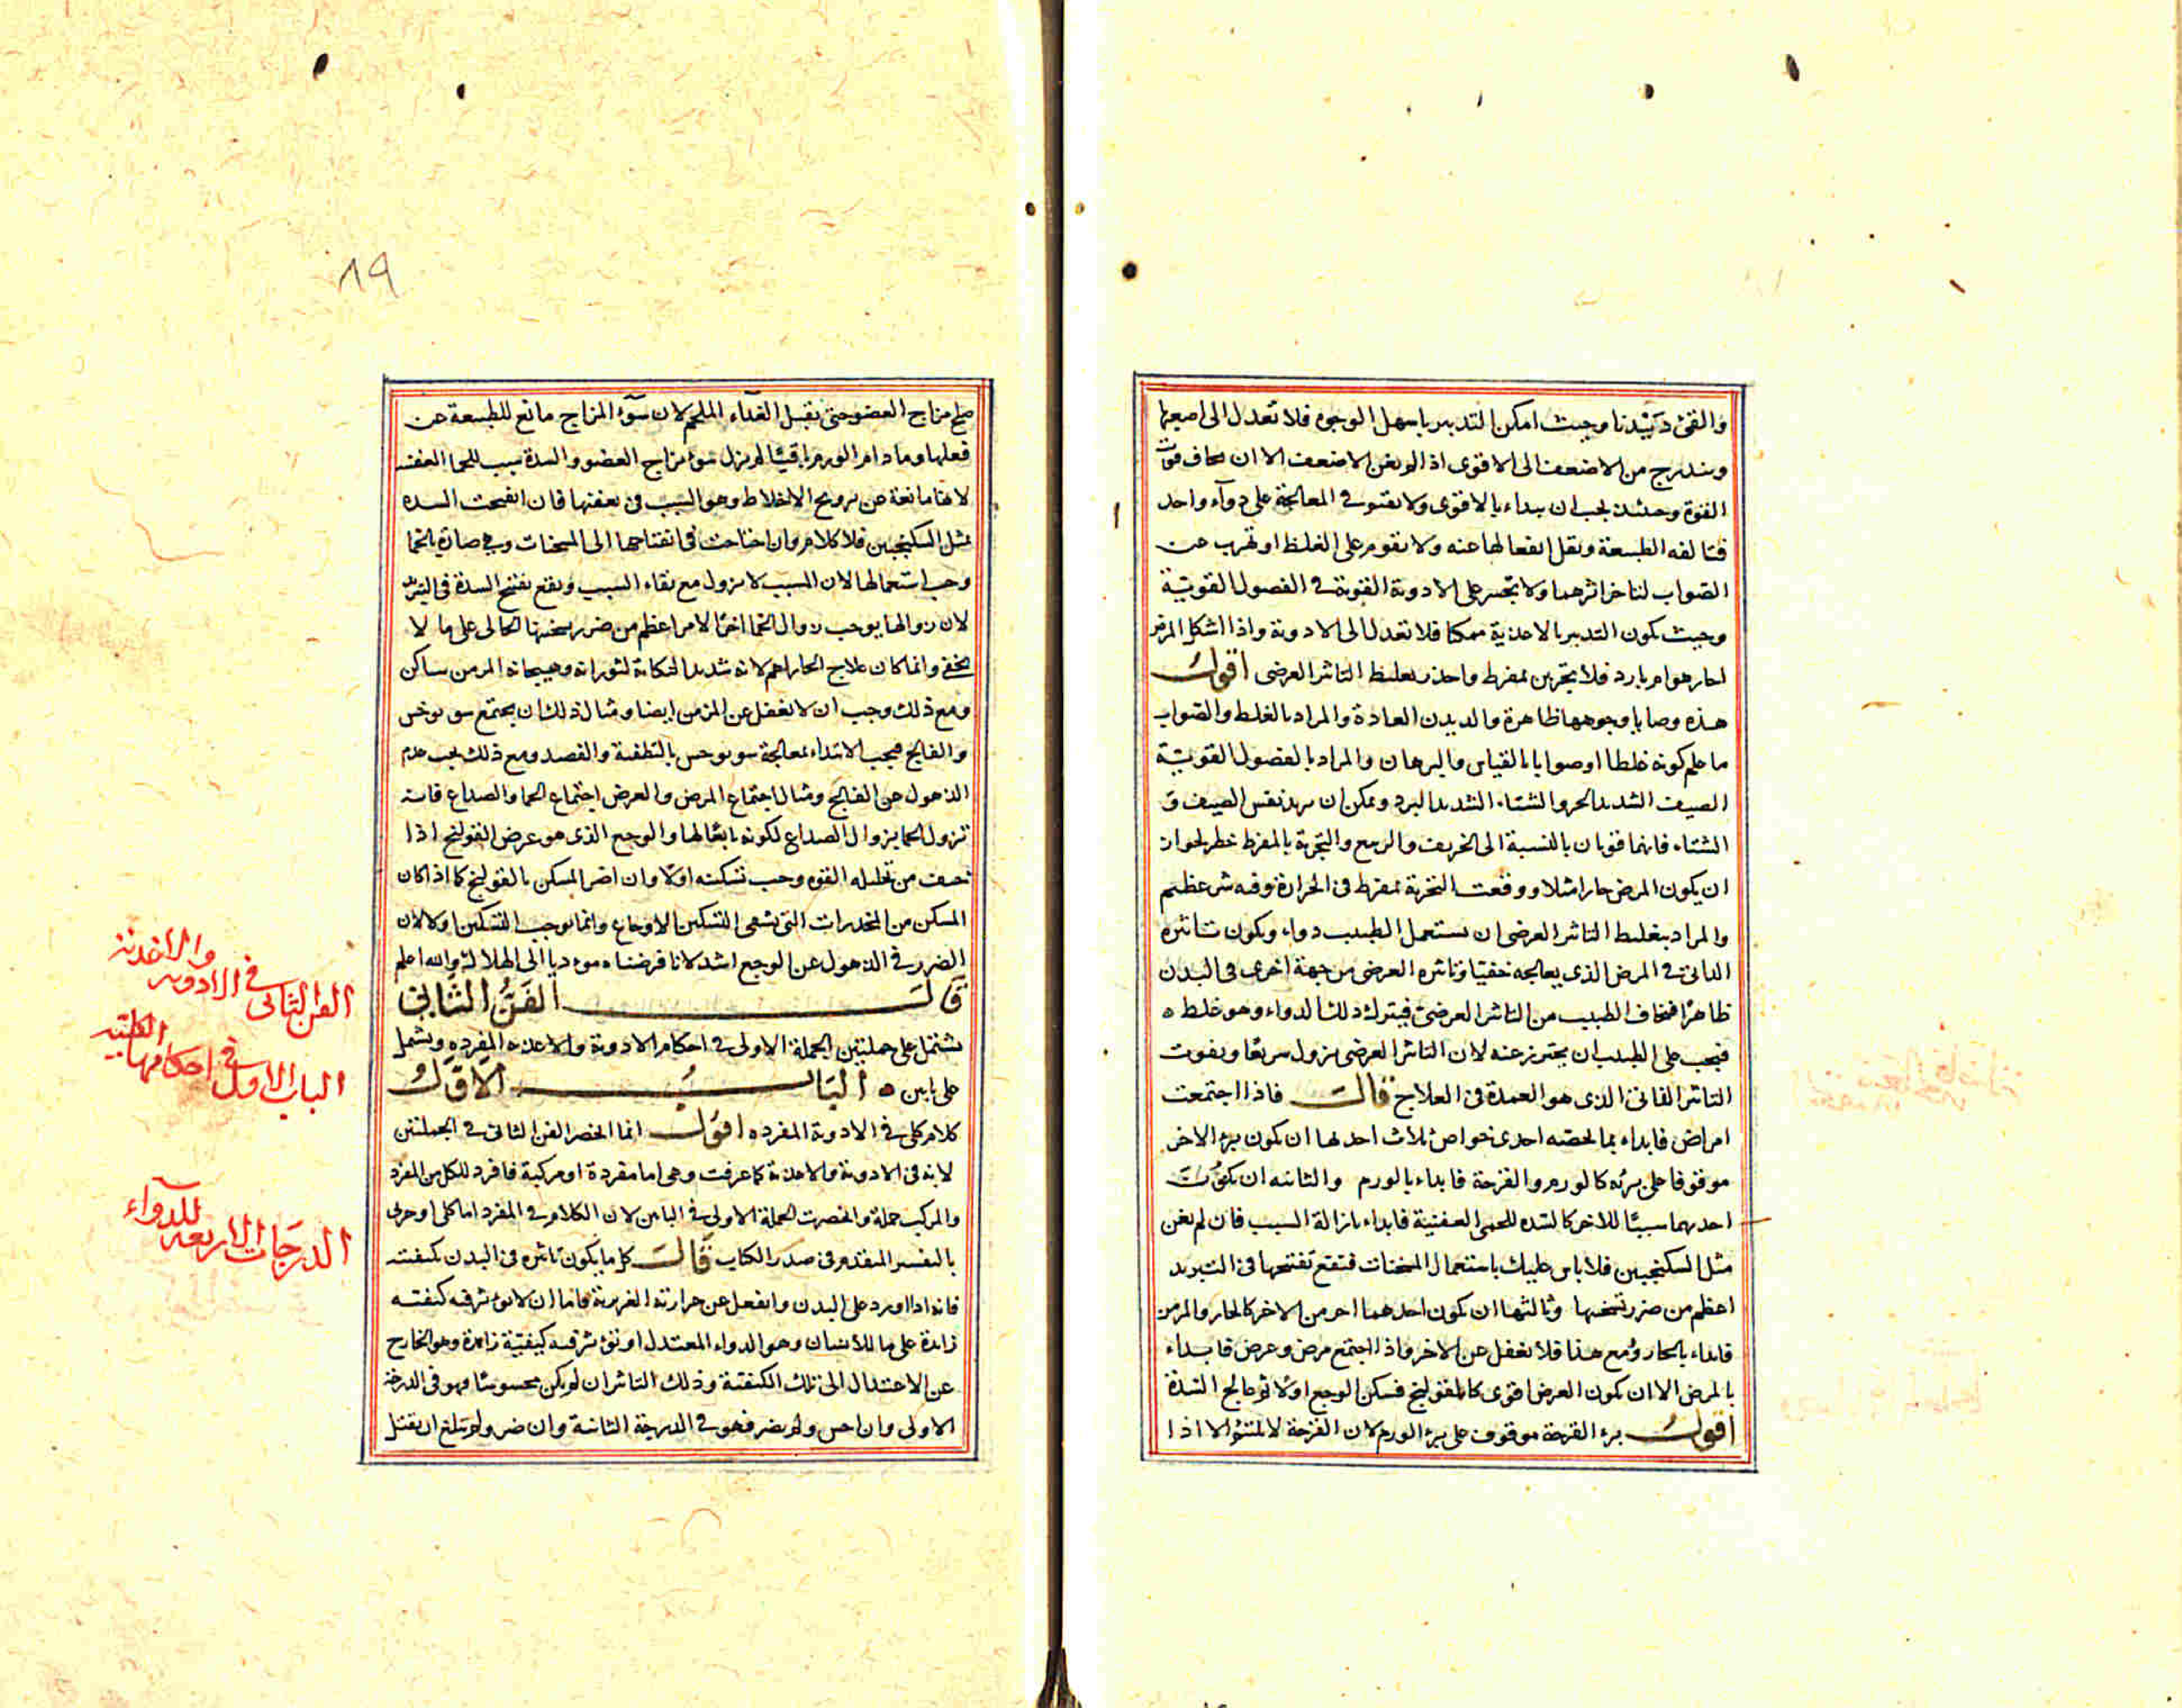 والقئ ديدنا وحيث امكن التدبير باسهل الوجوه فلا تعدل الى اصعبها
ويتدرج من الاضعف الى الاقوى اذا لم يغن الاضعف الا ان يخاف فوت
القوة وحينئذ يجب ان يبداء بالاقوى ولا يقتصر في المعالجة على دوآء واحد
فتالفه الطبيعة ويقل انفعالها عنه ولا تقوم على الغلط او تهرب عن
الصواب لتاخر اثرهما ولا تجسر على الادوية القوية في الفصول القوية
وحيث يكون التدبير بالاغذية ممكنا فلا تعدل الى الادوية واذا اشكل المرض
احار هو ام بارد فلا تجربن بمفرط واحذر تغليط التاثير العرضي اقول
هذه وصايا وجوهها ظاهرة والديدن العادة والمراد بالغلط والصواب
ما علم كونه غلطا او صوابا بالقياس والبرهان والمراد بالفصول القوية
الصيف الشديد الحر والشتاء الشديد البرد ويمكن ان يريد نفس الصيف و
الشتاء فانهما قويان بالنسبة الى الخريف والربيع والتجربة بالمفرط خطر لجواز
ان يكون المرض حارا مثلا ووقعت التجربة بمفرط في الحرارة وفيه شر عظيم
والمراد بتغليط التاثير العرضي ان يستعمل الطبيب دواء ويكون تاثيره
الذاتي في المرض الذي يعالجه خفيا وتاثيره العرضي من جهة اخرى في البدن
ظاهرا فيخاف الطبيب من التاثير العرضي فيترك ذلك الدواء وهو غلط ه
فيجب على الطبيب ان يحترز عنه لان التاثير العرضي يزول سريعا ويفوت
التاثير الذاتي الذي هو العمدة في العلاج قال فاذا اجتمعت
امراض فابداء بما يخصه احدى خواص ثلاث احدها ان يكون برء الاخر
موقوفا على برئه كالورم والقرحة فابداء بالورم والثانيه ان يكون
احدهما سببا للاخر كالسده للحمى العفنية فابداء بازالة السبب فان لم يغن
مثل السكنجبين فلا باس عليك باستعمال المسخنات فنفع تفتيحها في التبريد
اعظم من ضرر تسخينها وثالثها ان يكون احدهما اهم من الاخر كالحار والمزمن
فابداء بالحار ومع هذا فلا تغفل عن الاخر واذا اجتمع مرض وعرض فابداء
بالمرض الا ان يكون العرض اقوى كالقولنج فسكن الوجع اولا ثم عالج السدة
اقول برء القرحة موقوف على برء الورم لان القرحة لا تلتئم الا اذا
٨٩
صلح مزاج العضو حتى يقبل الغذاء الملحم لان سوء المزاج مانع للطبيعة عن
فعلها وما دام الورم باقيا لم يزل سوء مزاج العضو والسدة سبب للحما العفنيه
لانها مانعة عن ترويح الاخلاط وهو السبب في تعفنها فان انفتحت السده
بمثل السكنجبين فلا كلام وان احتاجت في انفتاحها الى المسخنات وهي ضارة بالحما
وجب استعمالها لان المسبب لا يزول مع بقاء السبب ونفع تفتيح السدة في التبريد
لان زوالها يوجب زوال الحما اخر الامر اعظم من ضرر تسخينها الحالي على ما لا
يخفى وانما كان علاج الحار اهم لانه شديد النكاية لثورانه وهيجانه المزمن ساكن
ومع ذلك وجب ان لا تغفل عن المزمن ايضا ومثال ذلك ان يجتمع سونوخس
والفالج فيجب الابتداء بمعالجة سونوخس بالتطفية والفصد ومع ذلك يجب عدم
الذهول عن الفالج ومثال اجتماع المرض والعرض اجتماع الحما والصداع فانه
تزول الحما يزوال الصداع لكونه تابعا لها والوجع الذي هو عرض القولنج اذا
خيف من تحليله القوه وجب تسكينه اولا وان اضر المسكن بالقولنج كما اذا كان
المسكن من المخدرات التي تسمى التسكين الاوجاع وانما يوجب التسكين اولا لان
الضرر في الذهول عن الوجع اشد لانا فرضناه مؤديا الى الهلاك والله اعلم
قال الفن الثاني
يشتمل على جملتين الجملة الاولى في احكام الادوية والاغذيه المفرده ويشمل
على بابين ه الباب الاول
كلام كلي في الادوية المفرده اقول انما انحصر الفن الثاني في الجملتين
لانه في الادوية والاغذية كما عرفت وهي اما مفردة او مركبة فافرد للكل من المفرد
والمركب جملة وانحصرت الجملة الاولى في البابين لان الكلام في المفرد اما كلي او جزئى
بالتفسير المتقدم في صدر الكتاب قال كل ما يكون تاثيره في البدن بكيفيته
فانه اذا ورد على البدن وانفعل عن حرارته الغريزية فاما ان لا يؤثر فيه كيفيته
زايدة على ما للانسان وهو الدواء المعتدل او يؤثر فيه كيفية زايدة وهو الخارج
عن الاعتدال الى تلك الكيفية وذلك التاثير ان لم يكن محسوسا فهو في الدرجة
الاولى وان احس ولم يضر فهو في الدرجة الثانية وان ضر ولم يبلغ ان يقتل
الفن الثاني في الادويه والاغذيه
الباب الاول في احكامها الكليه
الدرجات الاربعه للدوآء